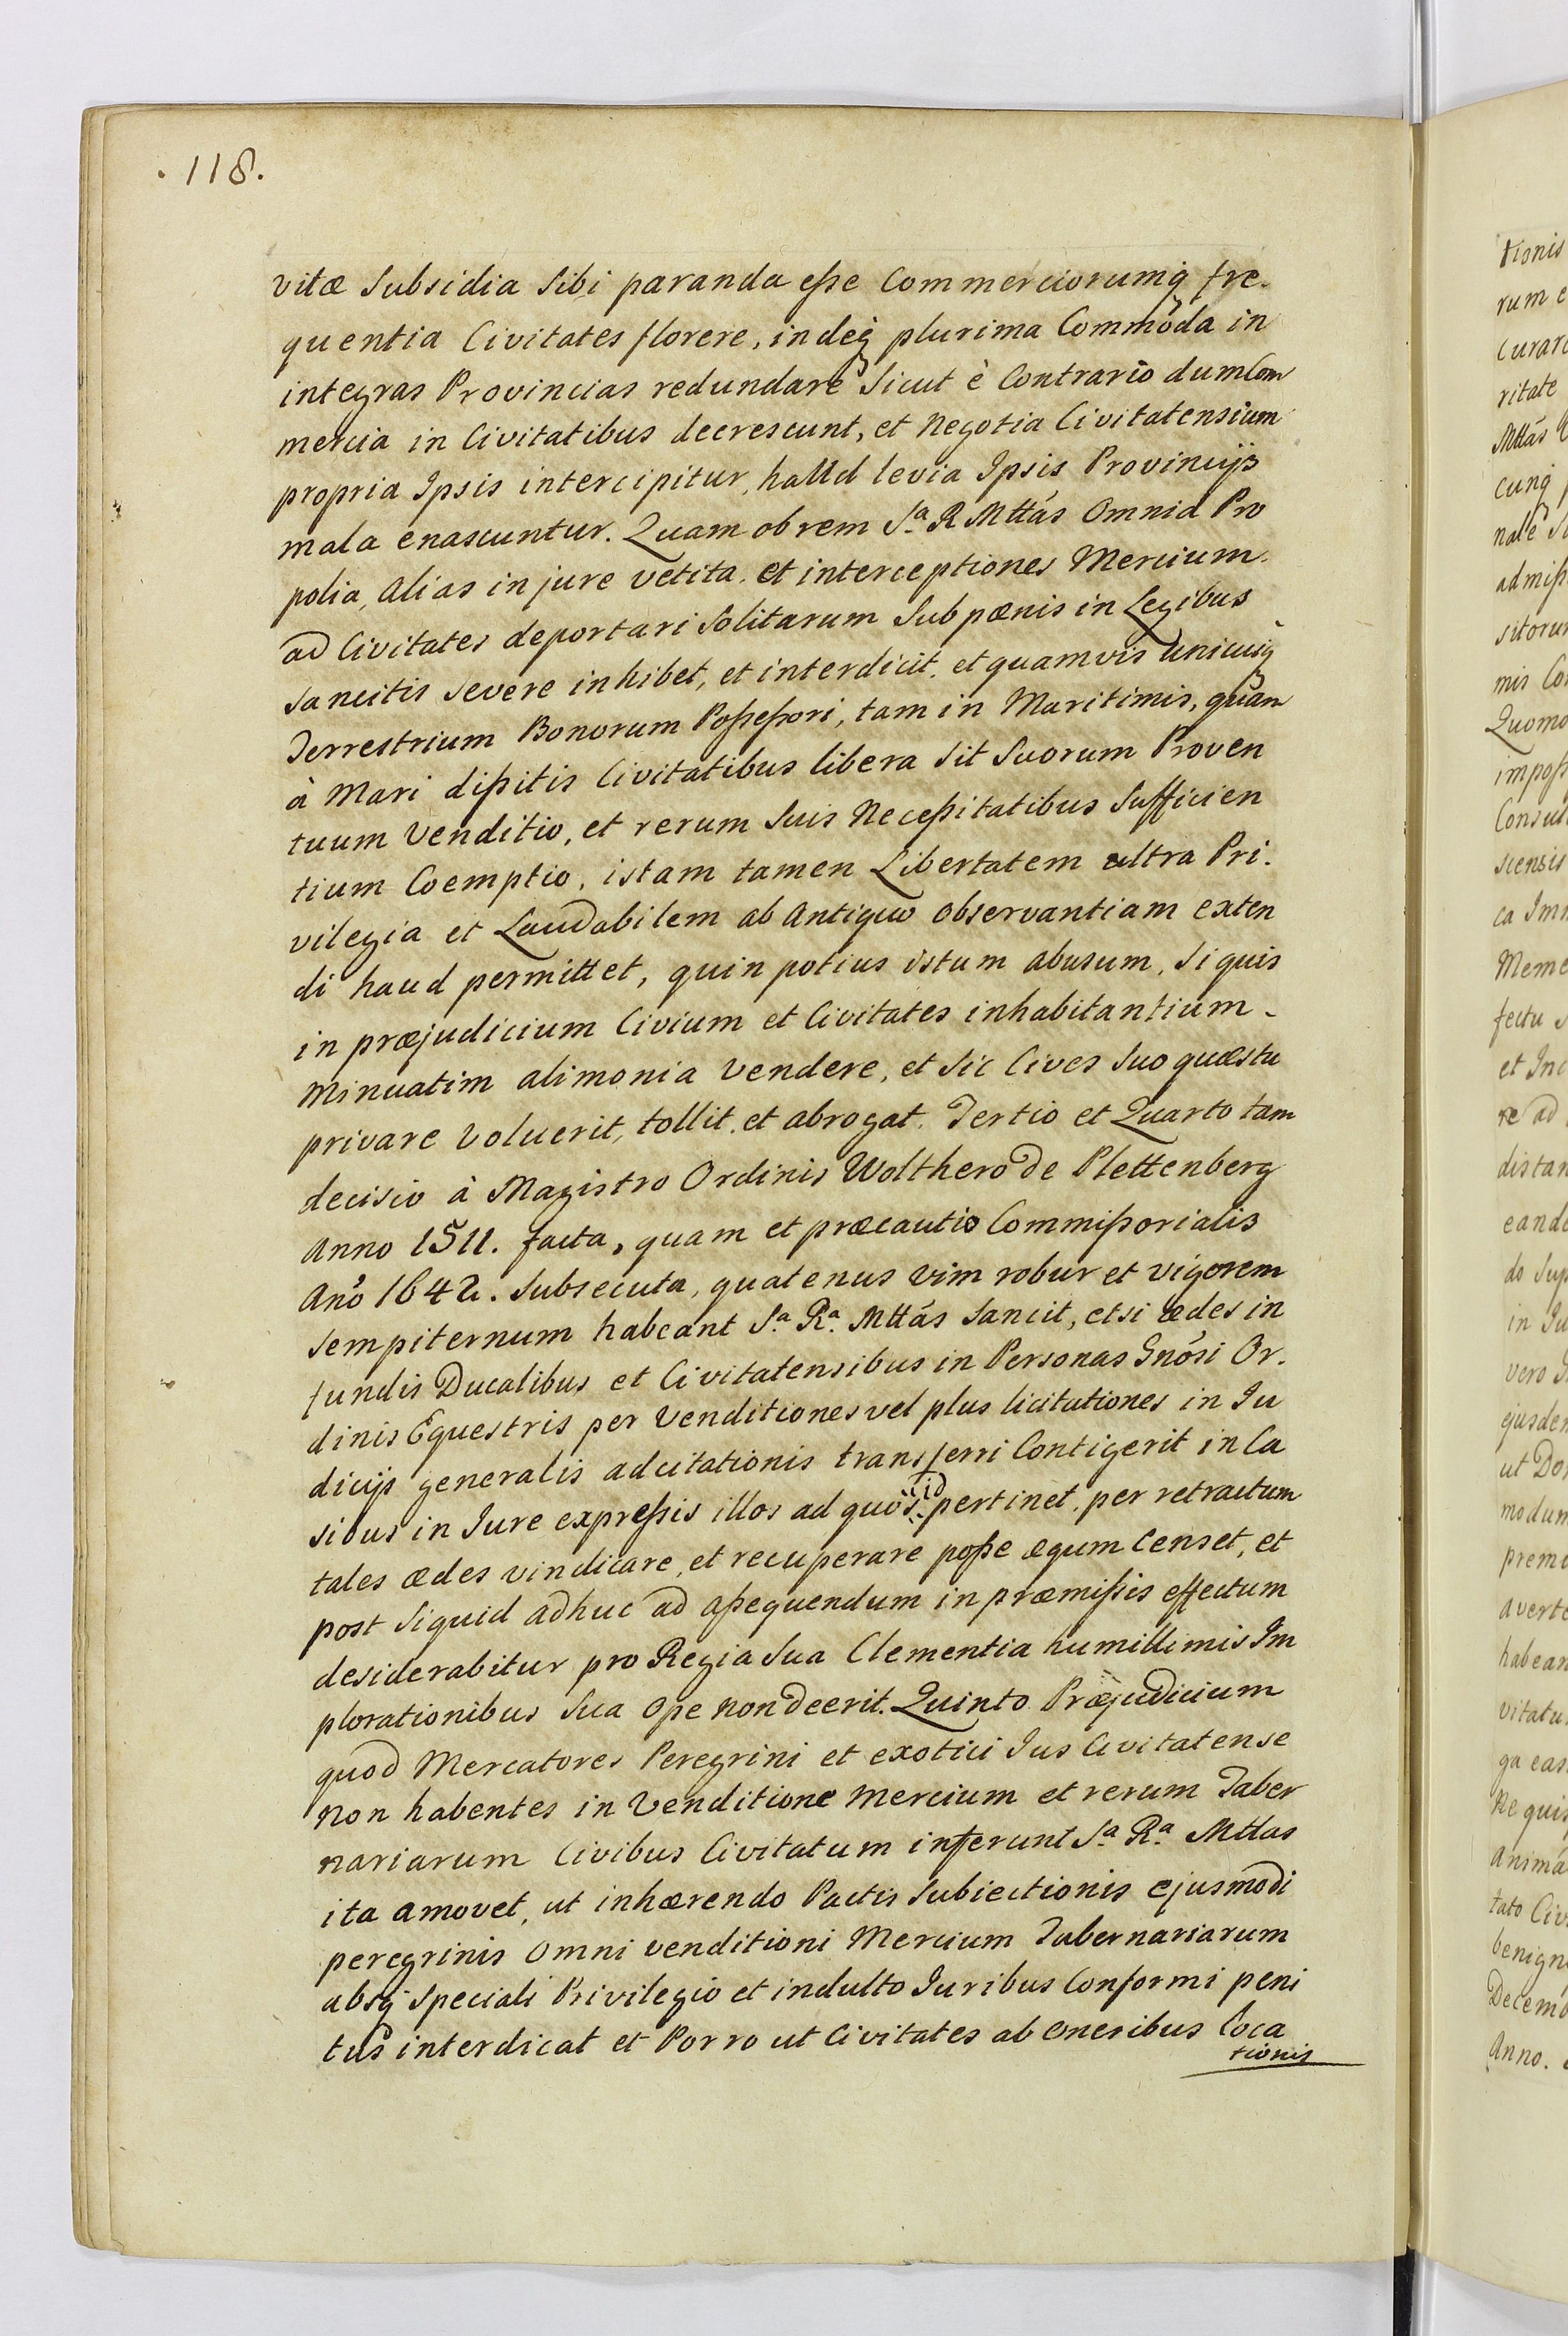 . 118.
vitæ Subsidia Sibi paranda eſse Commerciorumq fre-
quentia Civitates florere, indeq plurima Commoda in
integras Provincias redundare Sicut è Contrario dum Com
mercia in Civitatibus decrescunt, et Negotia Civitatensium
propria Ipsis intercipitur, haud levia Ipsis Provincijs
mala enascuntur. Quam obrem S.a R Mttás Omnia Pro
polia, alias in jure vetita, et interceptiones Mercium
ad Civitates deportari Solitarum Sub pænis in Legibus
Sancitis severe inhibet, et interdicit, et quamvis unicuiq
Terrestrium Bonorum Poſseſsori, tam in Maritimis, quàm
à Mari diſsitis Civitatibus libera Sit Suorum Proven
tuum Venditio, et rerum Suis Neceſsitatibus Sufficien
tium Coemptio, istam tamen Libertatem ultra Pri-
vilegia et Laudabilem ab Antiquo observantiam exten
di haud permittet, quin potius istum abusum, Si quis
in præjudicium Civium et Civitates inhabitantium -
Minuatim alimonia Vendere, et Sic Cives Suo quæstu
privare voluerit, tollit, et abrogat. Tertio et Quarto tam
decisio à Magistro Ordinis Wolthero de Plettenberg
Anno 1511. facta, quam et præcautio Commiſsorialis
Año 1642. Subsecuta, quatenus vim robur et vigorem
Sempiternum habeant S.a R.a Mttás Sancit, etsi ædes in
fundis Ducalibus et Civitatensibus in Personas Gnõsi Or-
dinis Equestris per Venditiones vel plus licitationes in Ju
dicijs generalis adcitationis transferri Contigerit in Ca
sibus in Jure expreſsis illos ad quos id pertinet, per retractum
tales ædes vindicare, et recuperare poſse æqum Censet, et
post Siquid adhuc ad aſsequendum in præmiſsis effectum
desiderabitur pro Regia Sua Clementia humillimis Im
plorationibus Sua Ope non deerit. Quinto Præjudicium
quod Mercatores Peregrini et exotici Jus Civitatense
Non habentes in Venditione Mercium et rerum Taber
nariarum Civibus Civitatum inferunt S.a R.a Mttas
ita amovet, ut inhærendo Pactis Subiectionis ejusmodi
peregrinis Omni venditioni Mercium Tabernariarum
absq Speciali Privilegio et indulto Juribus Conformi peni
tus interdicat et Porro ut Civitates ab Oneribus Loca
tionis
tionis
rum e
Curar
ritate
Mttás
cunq
nale
admiſs
sitoru
mis Co
Quomo
impoſs
Consul
sciensis
ca Im
Meme
fectu
et In
re ad
distan
eand
do Sup
in Ju
vero
ejusdem
ut Do
modum
prem
averte
habean
vitatu
ga eas
Ne quis
Anima
tato Civ
benign
Decemb
Anno.